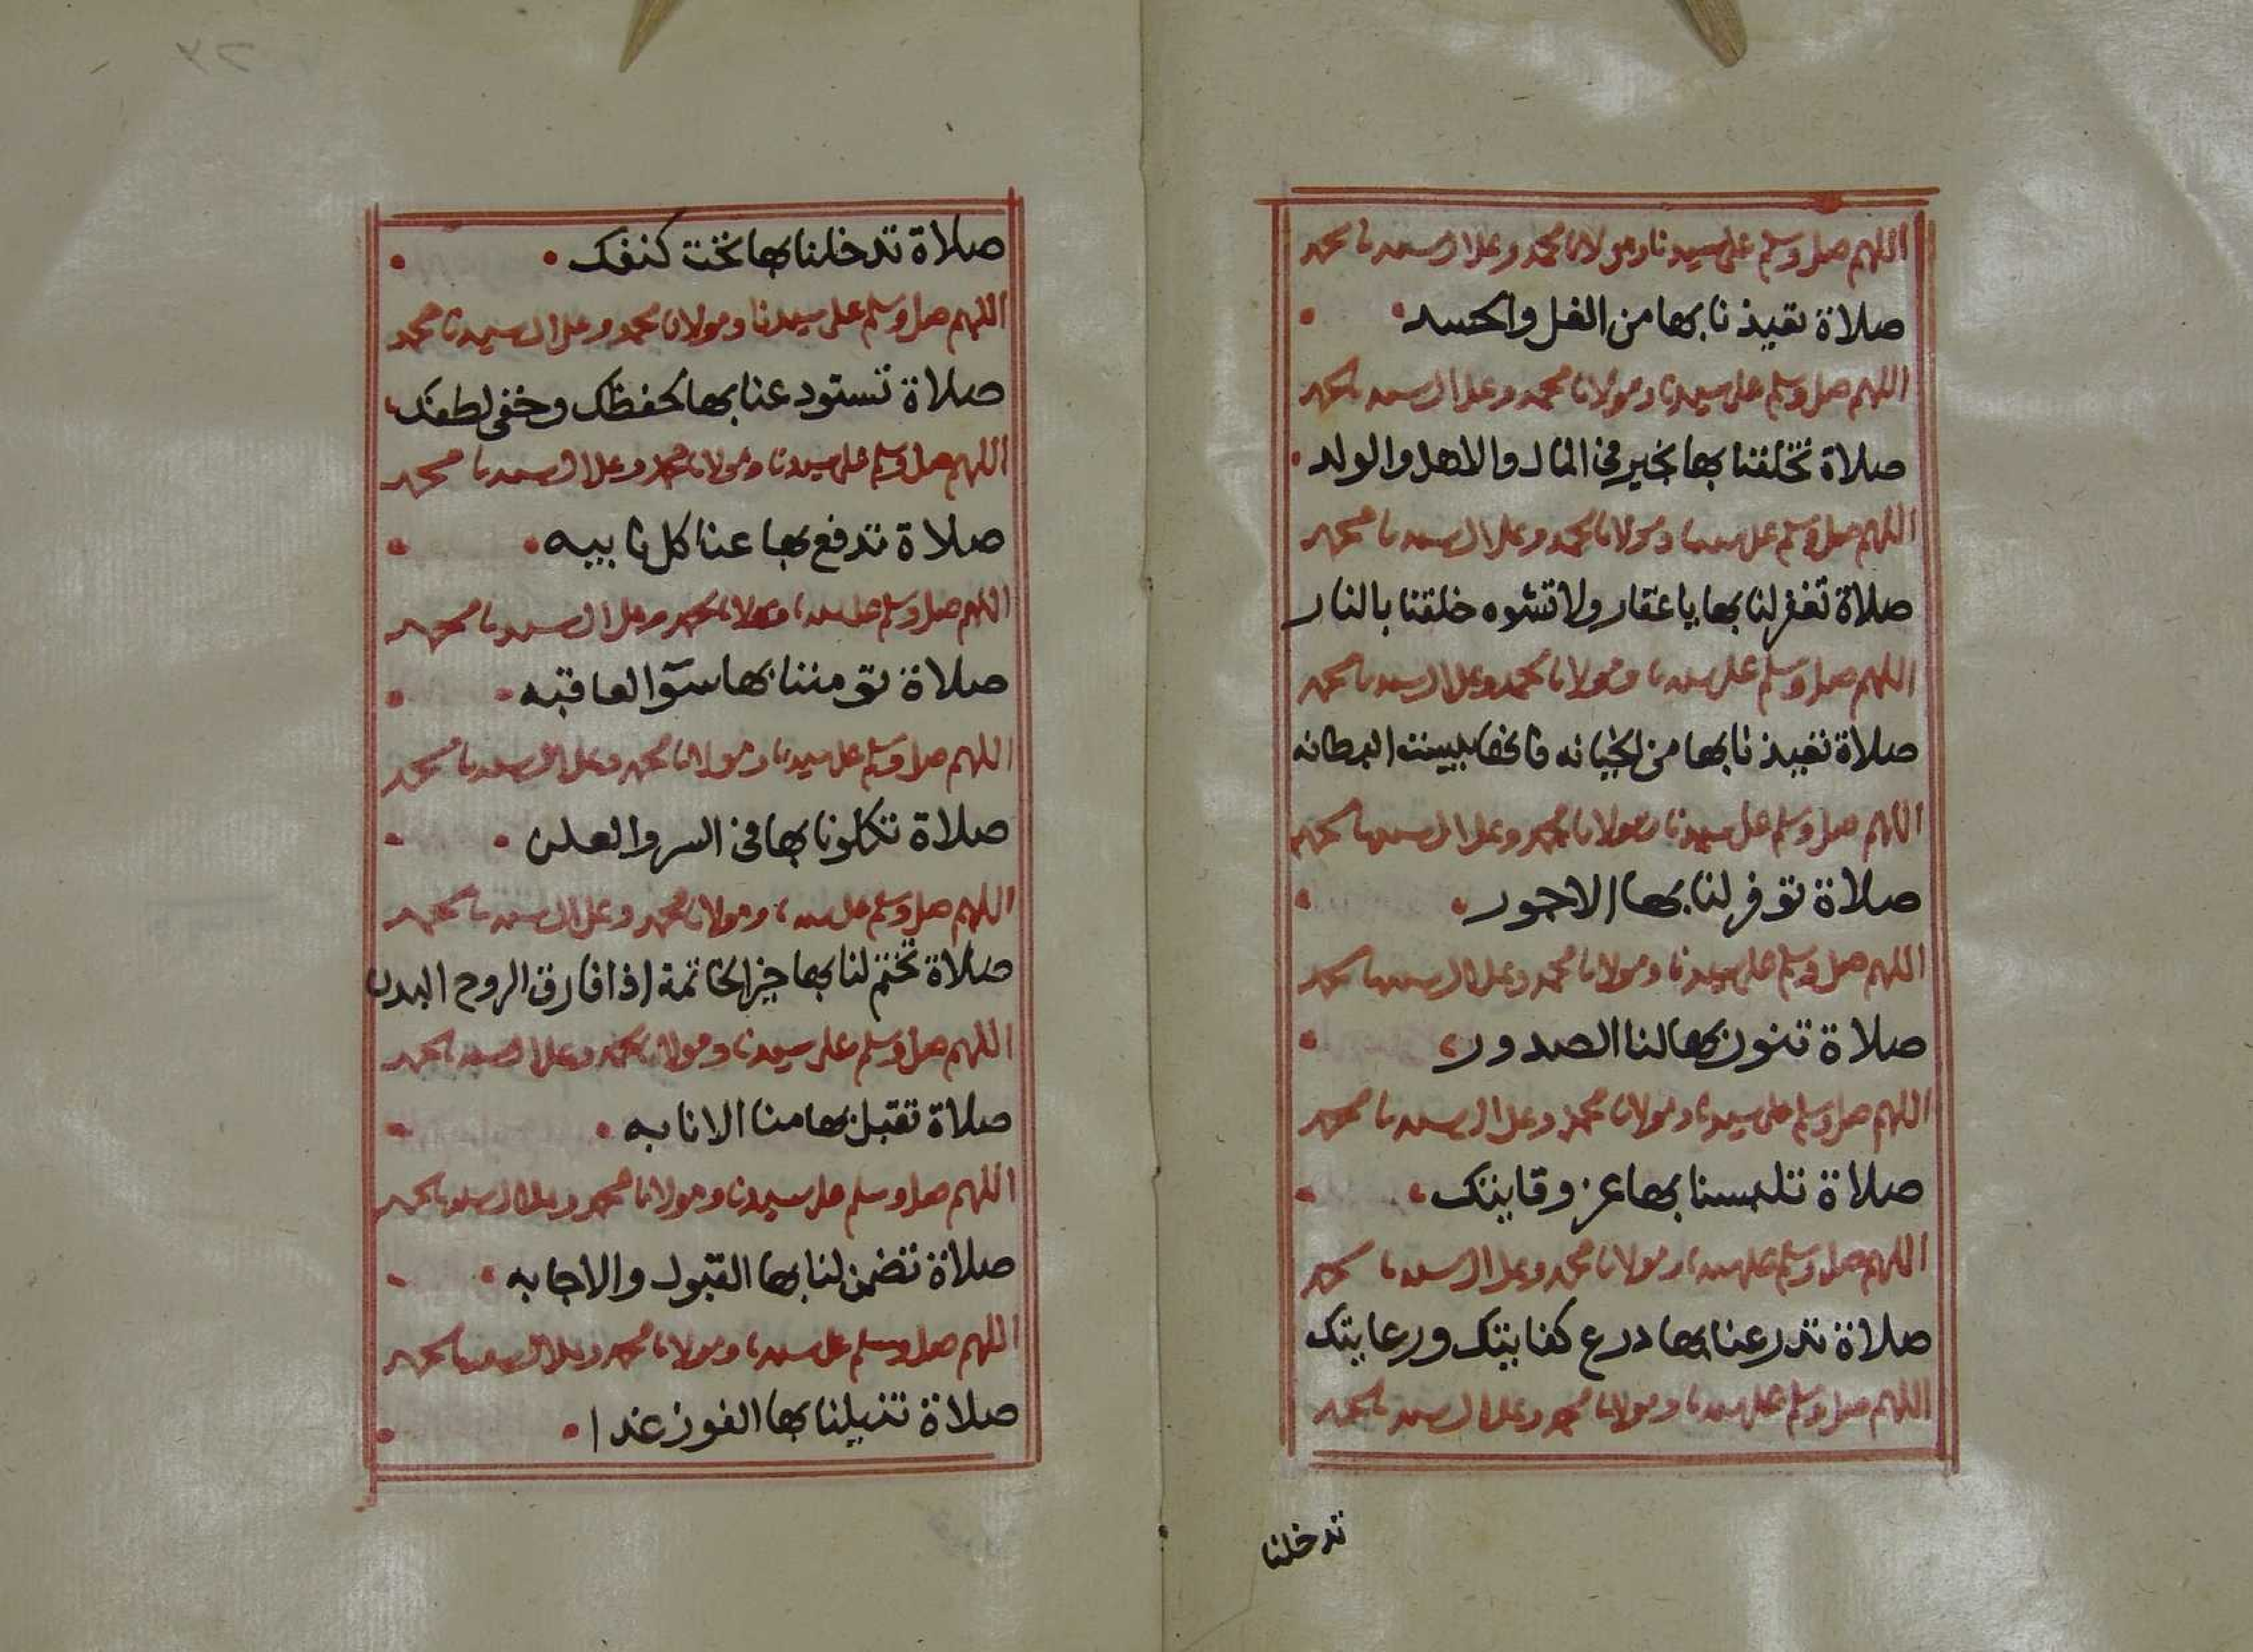 اللهم صل وسلم على سيدنا ومولانا محمد وعلى ال سيدنا محمد
صلاة تعيذنا بها من الغل والحسد
اللهم صل وسلم على سيدنا ومولانا محمد وعلى ال سيدنا محمد
صلاة تخلفنا بها بخير في المال والاهل والولد
اللهم صل وسلم على سيدنا ومولانا محمد وعلى ال سيدنا محمد
صلاة تغفر لنا بها يا غفار ولا تشوه خلقنا بالنار
اللهم صل وسلم على سيدنا ومولانا محمد وعلى ال سيدنا محمد
صلاة تعيذنا بها من الخيانه فانها بيست البطانه
اللهم صل وسلم على سيدنا ومولانا محمد وعلى ال سيدنا محمد
صلاة توفر لنا بها الاجور
اللهم صل وسلم على سيدنا ومولانا محمد وعلى ال سيدنا محمد
صلاة تنور بها لنا الصدور
اللهم صل وسلم على سيدنا ومولانا محمد وعلى ال سيدنا محمد
صلاة تلبسنا بها عز وقايتك
اللهم صل وسلم على سيدنا ومولانا محمد وعلى ال سيدنا محمد
صلاة تدرعنا بها درع كفايتك ورعايتك
اللهم صل وسلم على سيدنا ومولانا محمد وعلى ال سيدنا محمد
تدخلنا
صلاة تدخلنا بها تحت كنفك
اللهم صل وسلم على سيدنا ومولانا محمد وعلى ال سيدنا محمد
صلاة تستودعنا بها لحفظك وخفى لطفك
اللهم صل وسلم على سيدنا ومولانا محمد وعلى ال سيدنا محمد
صلاة تدفع بها عنا كل نايبه
اللهم صل وسلم على سيدنا ومولانا محمد وعلى ال سيدنا محمد
صلاة تومننا بها سوٓ العاقبه
اللهم صل وسلم على سيدنا ومولانا محمد وعلى ال سيدنا محمد
صلاة تكلونا بها في السر والعلن
اللهم صل وسلم على سيدنا ومولانا محمد وعلى ال سيدنا محمد
صلاة تختم لنا بها خير الخاتمة اذا فارق الروح البدن
اللهم صل وسلم على سيدنا ومولانا محمد وعلى ال سيدنا محمد
صلاة تقبل بها منا الانابه
اللهم صل وسلم على سيدنا ومولانا محمد وعلى ال سيدنا محمد
صلاة تضمن لنا بها القبول والاجابه
اللهم صل وسلم على سيدنا ومولانا محمد وعلى ال سيدنا محمد
صلاة تنيلنا بها الفوز غدا